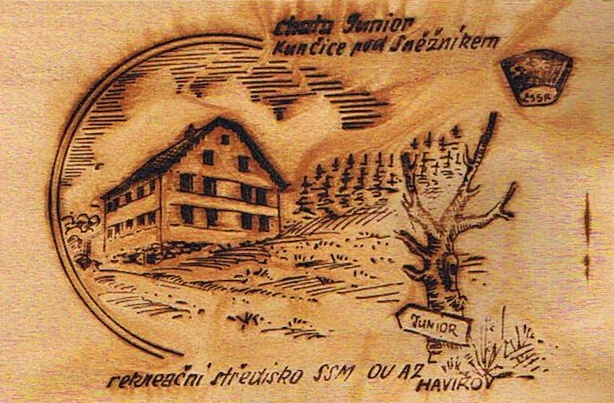 chata Junior
Kunčice pod Sněžníkem
ČSSR
JUNIOR
rekreační středisko SSM OV AZ
HAVÍŘOV